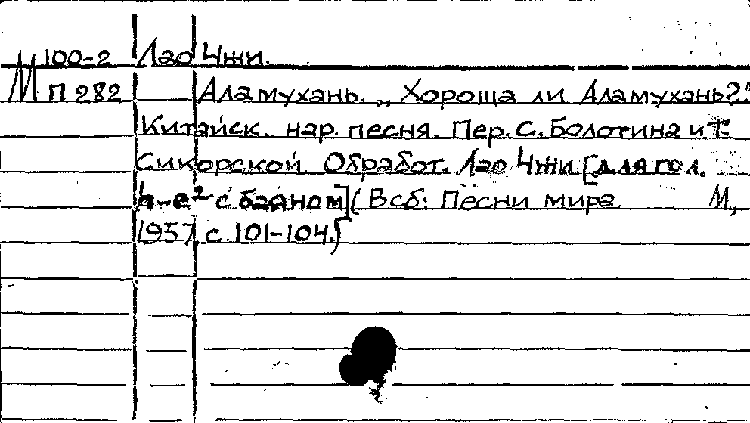 М 100-2 Лао Чжи.
П 282 Аламухань. „Хороша ли Аламухань?"
Китайск. нар. песня. Пер. С. Болотина и Т.
Сикорской Обработ. Лао Чжи [для гол.
h-e² с баяном] (В сб: Песни мира М,
1957 с. 101-104.)